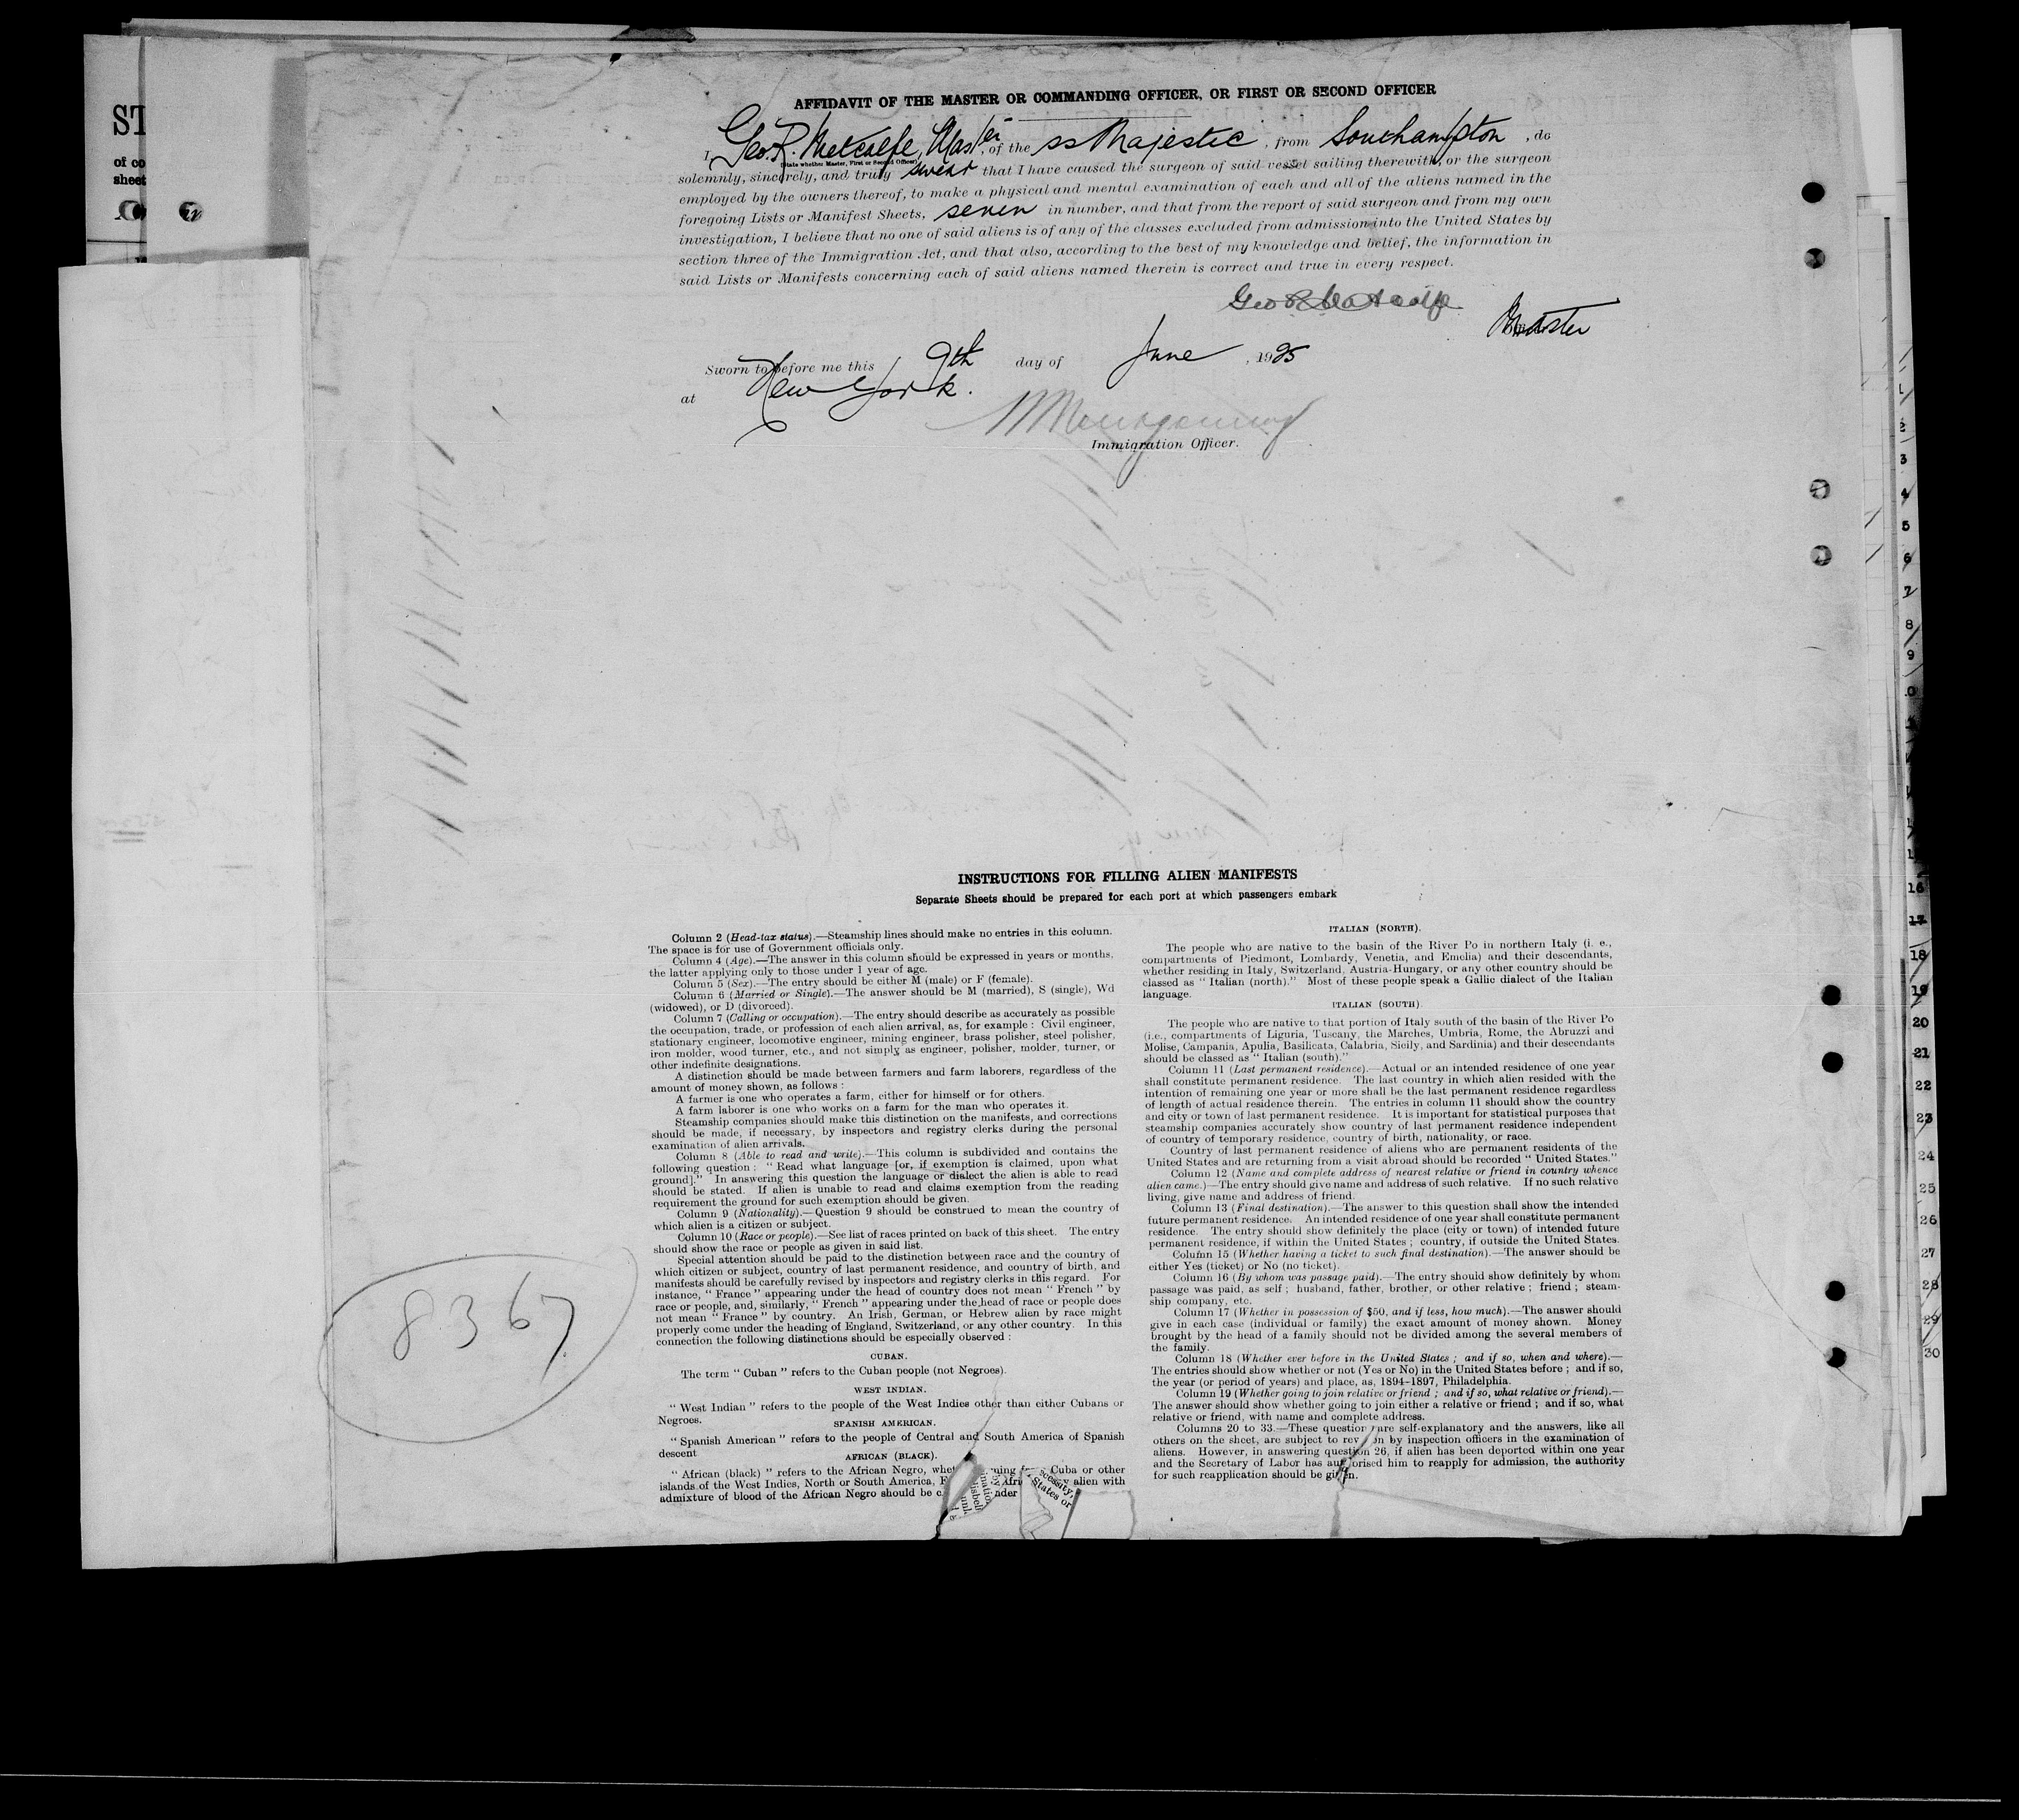 ST
of co
sheet
AFFIDAVIT OF THE MASTER OR COMMANDING OFFICER, OR FIRST OR SECOND OFFICER
I, Geo. R. Metcalfe, Master, of the ss Majestic, from Southampton, do
(State whether Master, First or Second Officer)
solemnly, sincerely, and truly swear that I have caused the surgeon of said vessel sailing therewith, or the surgeon
employed by the owners thereof, to make a physical and mental examination of each and all of the aliens named in the
foregoing Lists or Manifest Sheets, seven in number, and that from the report of said surgeon and from my own
investigation, I believe that no one of said aliens is of any of the classes excluded from admission into the United States by
section three of the Immigration Act, and that also, according to the best of my knowledge and belief, the information in
said Lists or Manifests concerning each of said aliens named therein is correct and true in every respect.
Geo R Metcalfe
Master
Sworn to before me this 9th day of June, 1925
at New York.
Montgomery
Immigration Officer.
INSTRUCTIONS FOR FILLING ALIEN MANIFESTS
Separate Sheets should be prepared for each port at which passengers embark
Column 2 (Head-tax status).—Steamship lines should make no entries in this column.
The space is for use of Government officials only.
Column 4 (Age).—The answer in this column should be expressed in years or months,
the latter applying only to those under 1 year of age.
Column 5 (Sex).—The entry should be either M (male) or F (female).
Column 6 (Married or Single).—The answer should be M (married), S (single), Wd
(widowed), or D (divorced).
Column 7 (Calling or occupation).—The entry should describe as accurately as possible
the occupation, trade, or profession of each alien arrival, as, for example : Civil engineer,
stationary engineer, locomotive engineer, mining engineer, brass polisher, steel polisher,
iron molder, wood turner, etc., and not simply as engineer, polisher, molder, turner, or
other indefinite designations.
A distinction should be made between farmers and farm laborers, regardless of the
amount of money shown, as follows :
A farmer is one who operates a farm, either for himself or for others.
A farm laborer is one who works on a farm for the man who operates it.
Steamship companies should make this distinction on the manifests, and corrections
should be made, if necessary, by inspectors and registry clerks during the personal
examination of alien arrivals.
Column 8 (Able to read and write).—This column is subdivided and contains the
following question : “ Read what language [or, if exemption is claimed, upon what
ground].” In answering this question the language or dialect the alien is able to read
should be stated. If alien is unable to read and claims exemption from the reading
requirement the ground for such exemption should be given.
Column 9 (Nationality).—Question 9 should be construed to mean the country of
which alien is a citizen or subject.
Column 10 (Race or people).—See list of races printed on back of this sheet. The entry
should show the race or people as given in said list.
Special attention should be paid to the distinction between race and the country of
which citizen or subject, country of last permanent residence, and country of birth, and
manifests should be carefully revised by inspectors and registry clerks in this regard. For
instance, “ France ” appearing under the head of country does not mean “ French ” by
race or people, and, similarly, “ French ” appearing under the head of race or people does
not mean “ France ” by country. An Irish, German, or Hebrew alien by race might
properly come under the heading of England, Switzerland, or any other country. In this
connection the following distinctions should be especially observed :
CUBAN.
The term “ Cuban ” refers to the Cuban people (not Negroes).
WEST INDIAN.
“ West Indian ” refers to the people of the West Indies other than either Cubans or
Negroes.
SPANISH AMERICAN.
“ Spanish American ” refers to the people of Central and South America of Spanish
descent
AFRICAN (BLACK).
“ African (black) ” refers to the African Negro, whet ming Cuba or other
islands of the West Indies, North or South America, E Afri alien with
admixture of blood of the African Negro should be c nder
scessity,
States or
ITALIAN (NORTH).
The people who are native to the basin of the River Po in northern Italy (i. e.,
compartments of Piedmont, Lombardy, Venetia, and Emelia) and their descendants,
whether residing in Italy, Switzerland, Austria-Hungary, or any other country should be
classed as “ Italian (north).” Most of these people speak a Gallic dialect of the Italian
language.
ITALIAN (SOUTH).
The people who are native to that portion of Italy south of the basin of the River Po
(i.e., compartments of Liguria, Tuscany, the Marches, Umbria, Rome, the Abruzzi and
Molise, Campania, Apulia, Basilicata, Calabria, Sicily, and Sardinia) and their descendants
should be classed as “ Italian (south).”
Column 11 (Last permanent residence).—Actual or an intended residence of one year
shall constitute permanent residence. The last country in which alien resided with the
intention of remaining one year or more shall be the last permanent residence regardless
of length of actual residence therein. The entries in column 11 should show the country
and city or town of last permanent residence. It is important for statistical purposes that
steamship companies accurately show country of last permanent residence independent
of country of temporary residence, country of birth, nationality, or race.
Country of last permanent residence of aliens who are permanent residents of the
United States and are returning from a visit abroad should be recorded “ United States.”
Column 12 (Name and complete address of nearest relative or friend in country whence
alien came.)—The entry should give name and address of such relative. If no such relative
living, give name and address of friend.
Column 13 (Final destination).—The answer to this question shall show the intended
future permanent residence. An intended residence of one year shall constitute permanent
residence. The entry should show definitely the place (city or town) of intended future
permanent residence, if within the United States ; country, if outside the United States.
Column 15 (Whether having a ticket to such final destination).—The answer should be
either Yes (ticket) or No (no ticket).
Column 16 (By whom was passage paid).—The entry should show definitely by whom
passage was paid, as self ; husband, father, brother, or other relative ; friend ; steam-
ship company, etc.
Column 17 (Whether in possession of $50, and if less, how much).—The answer should
give in each case (individual or family) the exact amount of money shown. Money
brought by the head of a family should not be divided among the several members of
the family.
Column 18 (Whether ever before in the United States ; and if so, when and where).—
The entries should show whether or not (Yes or No) in the United States before ; and if so,
the year (or period of years) and place, as, 1894-1897, Philadelphia.
Column 19 (Whether going to join relative or friend ; and if so, what relative or friend).—
The answer should show whether going to join either a relative or friend ; and if so, what
relative or friend, with name and complete address.
Columns 20 to 33.—These question are self-explanatory and the answers, like all
others on the sheet, are subject to rev on by inspection officers in the examination of
aliens. However, in answering question 26, if alien has been deported within one year
and the Secretary of Labor has authorised him to reapply for admission, the authority
for such reapplication should be given.
8367
3
4
5
6
7
8
9
16
17
18
19
20
21
22
23
24
25
26
27
28
29
30